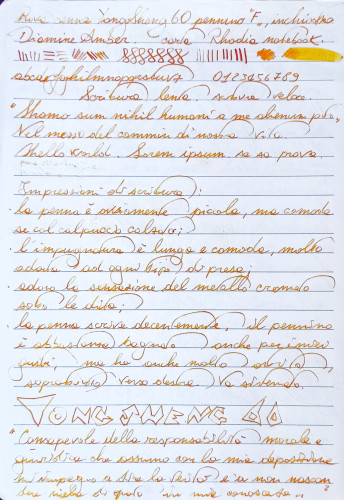 penna YongSheng 60 pennino "F", inchiostro
Diamine Amber. carta Rhodia notebook.
abcdefghilmnopqrstuvz 0123456789
Scrittura lenta scrittura veloce
"Homo sum nihil humani a me alienum puto"
Nel mezzo del cammin di nostra vita.
Hello World. Lorem ipsum se sa prova.
Impressioni di scrittura:
- la penna è piccola, ma comoda
se col cappuccio calzato;
- l'impugnatura è lunga e comoda, molto
adatta ad ogni tipo di presa;
- adoro la sensazione del metallo cromato
sotto le dita;
- la penna scrive decentemente, il pennino
è abbastanza bagnato anche per i miei
gusti, ma ha anche molto attrito,
soprattutto verso destra. Va sistemato.
YONG SHENG 60
"Consapevole della responsabilità morale e
giuridica che assumo con la mia deposizione
mi impegno a dire la verità e a non nascon
dere nulla di quanto in mia conoscenza"